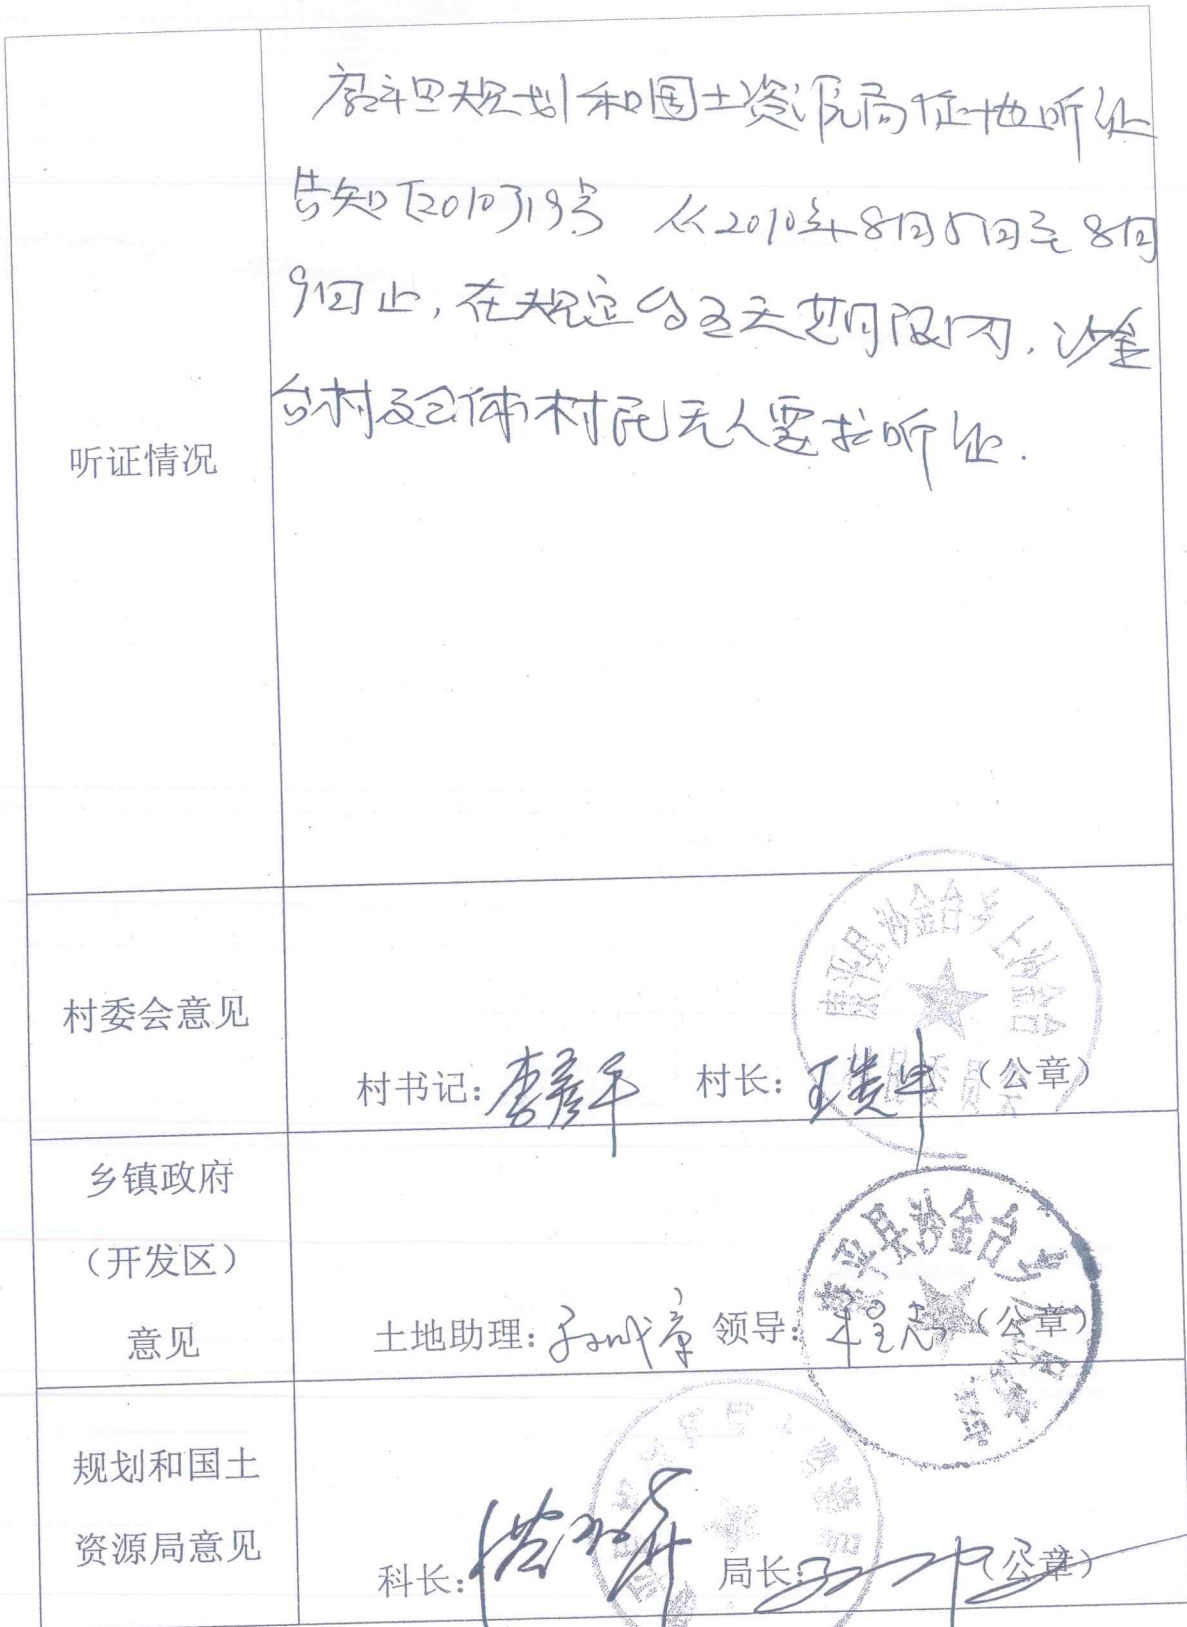 康平县规划和国土资源局征地听证
告知[2010]19号 从2010年8月5日至8月
9日止,在规定的五天期限内,沙金
台村及全体村民无人要求听证.
听证情况
康平县沙金台乡上沙金台
村民委员会
村委会意见
村书记:李彦平 村长: (公章)
乡镇政府
(开发区)
意见
康平县沙金台乡人民政府
土地助理: 领导: (公章)
规划和国土
资源局意见
科长: 局长: (公章)